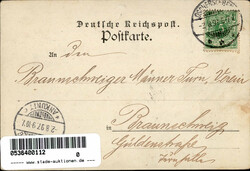 Deutsche Reichspost.
Postkarte.
An den
Braunschweiger Männer Turn Verein
in Braunschweig
Güldenstraße
Turnhalle
ANKUNFT
2.8.97.9-10.V
0536400112 0
www.slade-auktionen.de